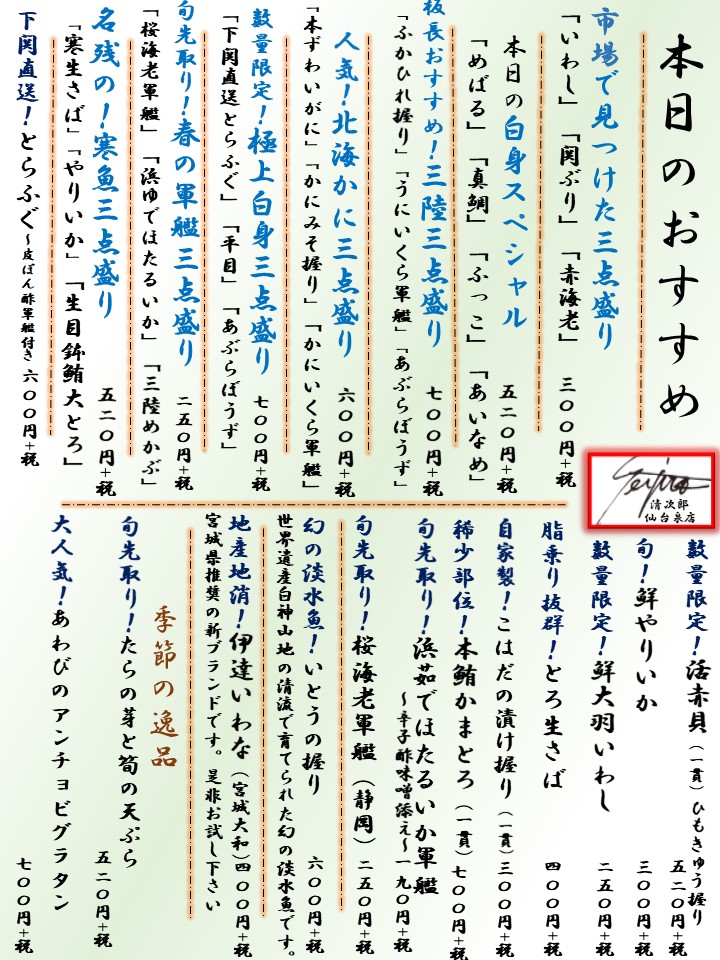 本日のおすすめ
市場で見つけた三点盛り
「いわし」「関ぶり」「赤海老」 三〇〇円+税
本日の白身スペシャル 五二〇円+税
「めばる」「真鯛」「ふっこ」「あいなめ」
板長おすすめ!三陸三点盛り 七〇〇円+税
「ふかひれ握り」「うにいくら軍艦」「あぶらぼうず」
人気!北海かに三点盛り 六〇〇円+税
「本ずわいがに」「かにみそ握り」「かにいくら軍艦」
数量限定!極上白身三点盛り 七〇〇円+税
「下関直送とらふぐ」「平目」「あぶらぼうず」
旬先取り!春の軍艦三点盛り 二五〇円+税
「桜海老軍艦」「浜ゆでほたるいか」「三陸めかぶ」
名残の!寒魚三点盛り 五二〇円+税
「寒生さば」「やりいか」「生目鉢鮪大とろ」
下関直送!とらふぐ~皮ぽん酢軍艦付き 六〇〇円+税
Seijiro
清次郎
仙台泉店
数量限定!活赤貝(一貫)ひもきゅう握り 五二〇円+税
旬!鮮やりいか 三〇〇円+税
数量限定!鮮大羽いわし 二五〇円+税
脂乗り抜群!とろ生さば 四〇〇円+税
自家製!こはだの漬け握り(一貫)三〇〇円+税
稀少部位!本鮪かまとろ(一貫)七〇〇円+税
旬先取り!浜茹でほたるいか軍艦
~辛子酢味噌添え~一九〇円+税
旬先取り!桜海老軍艦(静岡)二五〇円+税
幻の淡水魚!いとうの握り 六〇〇円+税
世界遺産白神山地の清流で育てられた幻の淡水魚です。
地産地消!伊達いわな(宮城大和)四〇〇円+税
宮城県推奨の新ブランドです。是非お試し下さい
季節の逸品
旬先取り!たらの芽と筍の天ぷら 五二〇円+税
大人気!あわびのアンチョビグラタン 七〇〇円+税